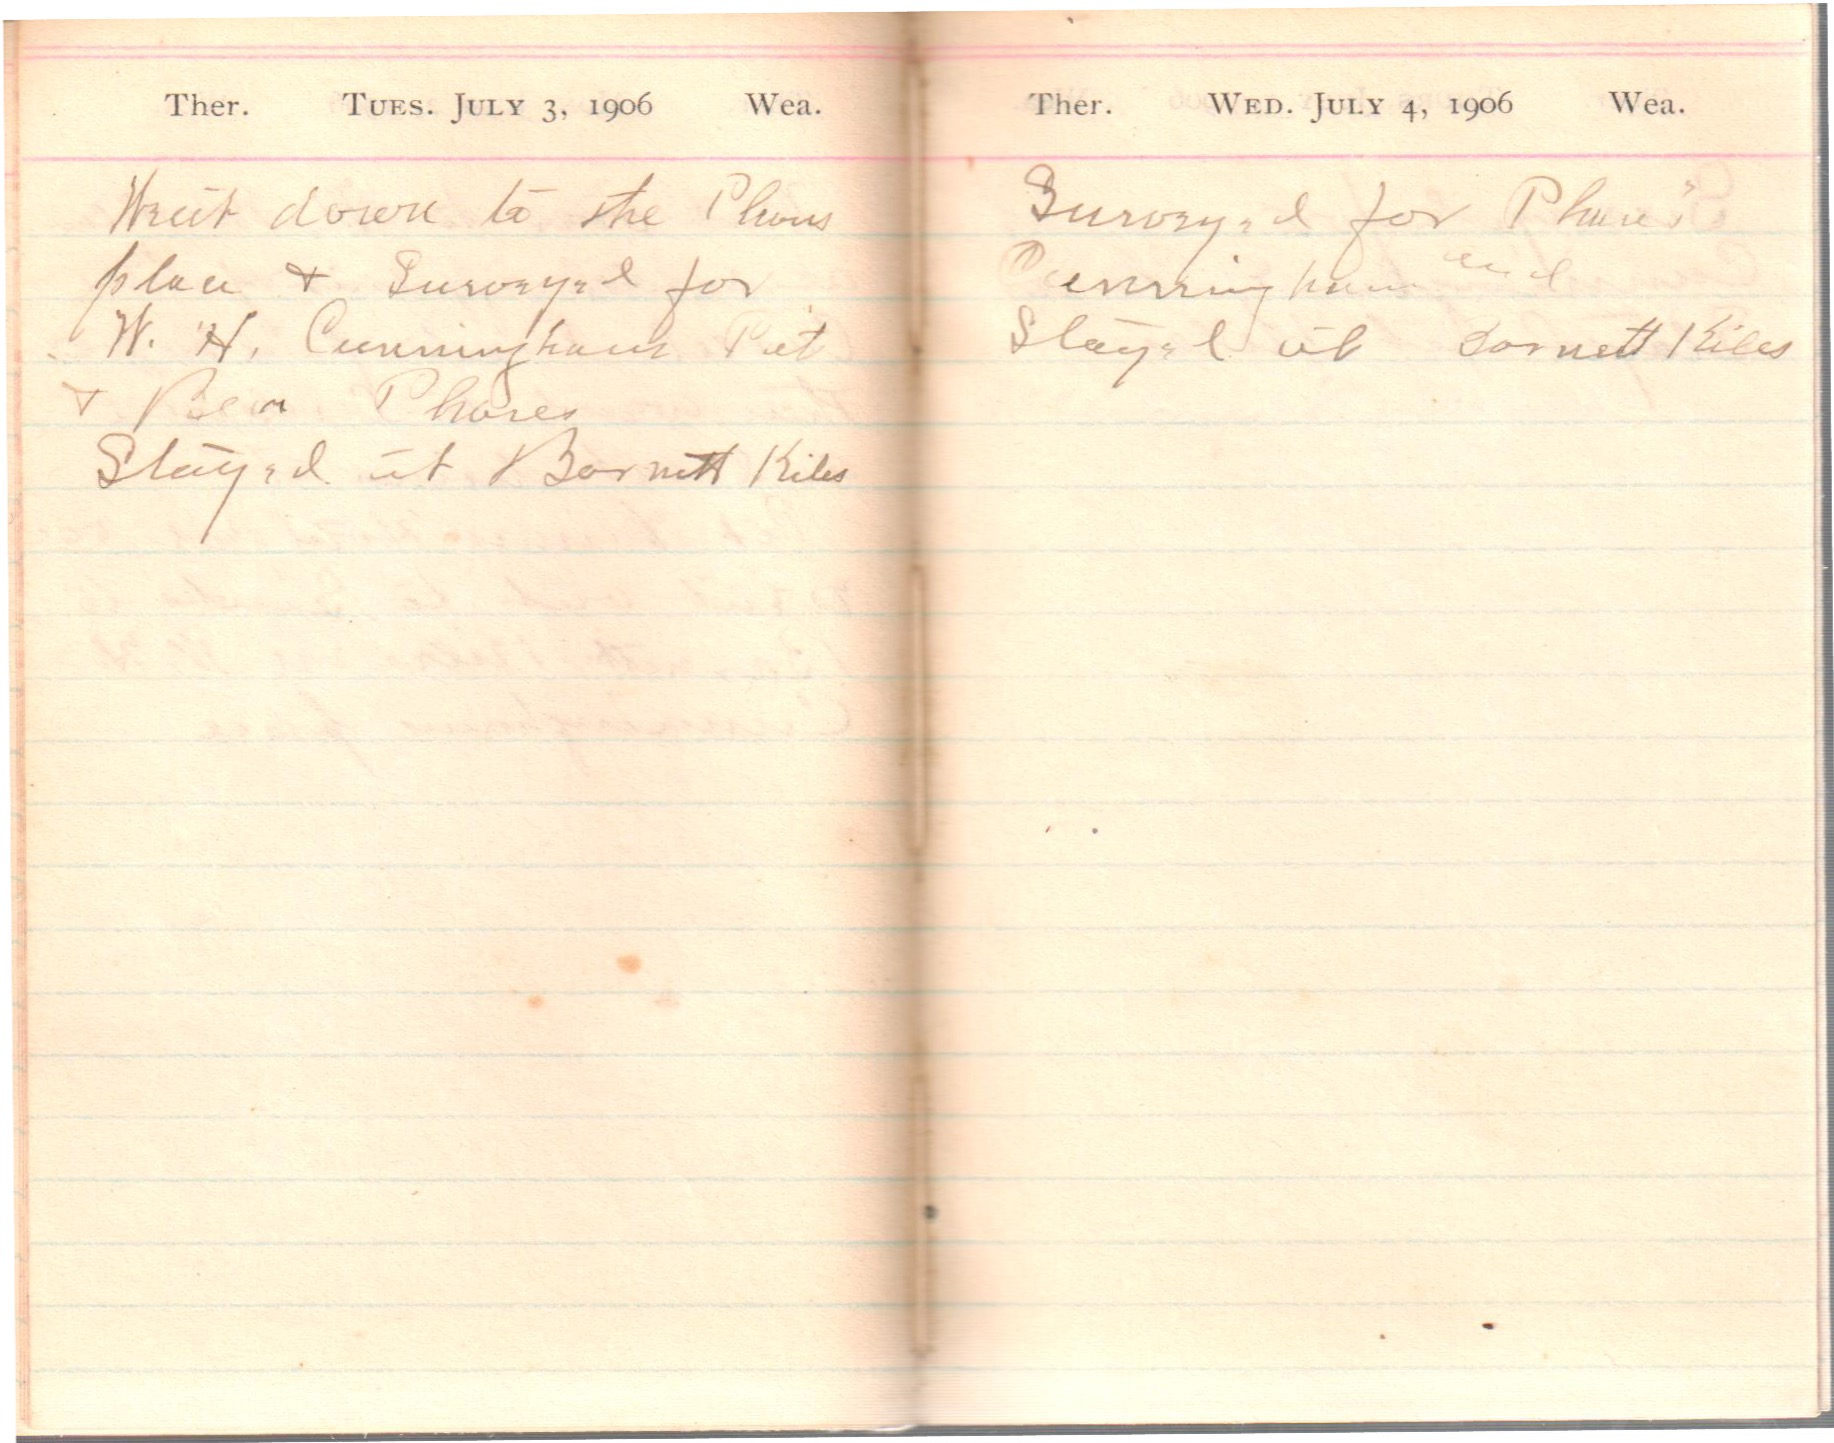 Ther. TUES. JULY 3, 1906 Wea.
Went down to the Phares
place & Surveyed for
W. H. Cunningham Pat
& Ben Phares
Stayed at Barnett Kiles
Ther. WED. JULY 4, 1906 Wea.
Surveyed for Phares
Cunningham and
Stayed at Barnett Kiles